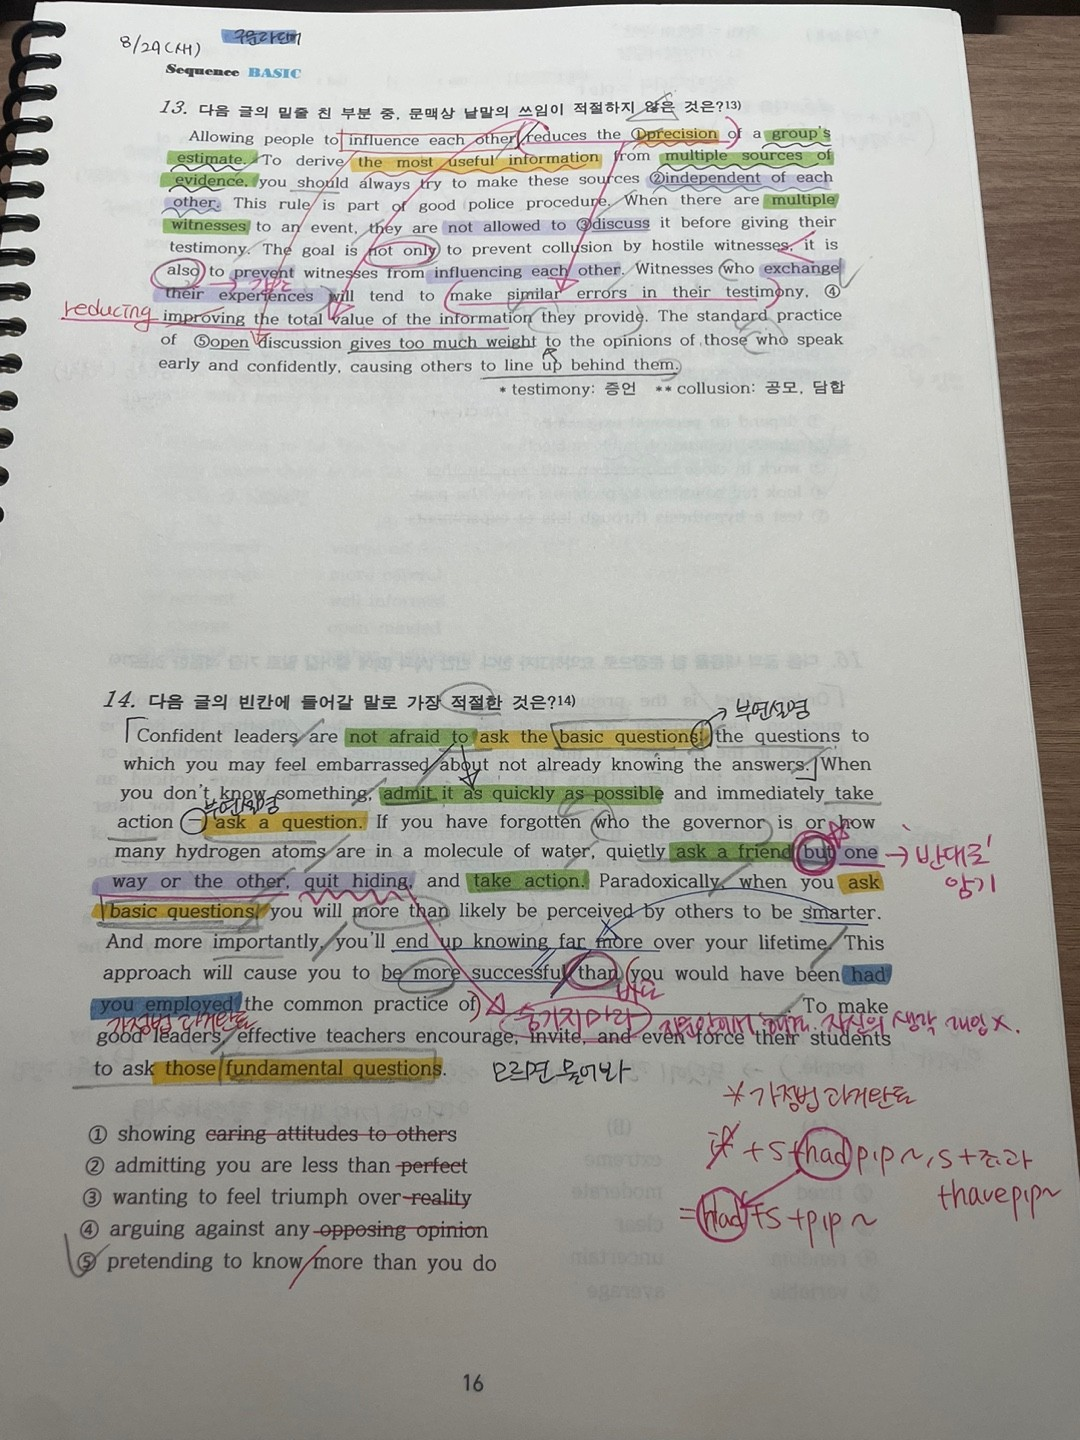 8/29(새) 구문라단테
Sequence BASIC
13. 다음 글의 밑줄 친 부분 중, 문맥상 낱말의 쓰임이 적절하지 않은 것은?13)
Allowing people to influence each other reduces the ①precision of a group's
estimate. To derive the most useful information from multiple sources of
evidence, you should always try to make these sources ②independent of each
other. This rule is part of good police procedure. When there are multiple
witnesses to an event, they are not allowed to ③discuss it before giving their
testimony. The goal is not only to prevent collusion by hostile witnesses, it is
also to prevent witnesses from influencing each other. Witnesses who exchange
their experiences will tend to make similar errors in their testimony, ④
reducing improving the total value of the information they provide. The standard practice
of ⑤open discussion gives too much weight to the opinions of those who speak
early and confidently, causing others to line up behind them.
* testimony: 증언 ** collusion: 공모, 담합
14. 다음 글의 빈칸에 들어갈 말로 가장 적절한 것은?14)
부연설명
Confident leaders are not afraid to ask the basic questions: the questions to
which you may feel embarrassed about not already knowing the answers. When
you don't know something, admit it as quickly as possible and immediately take
부연설명
action — ask a question. If you have forgotten who the governor is or how
many hydrogen atoms are in a molecule of water, quietly ask a friend but one → 반대로
way or the other, quit hiding, and take action. Paradoxically, when you ask
basic questions, you will more than likely be perceived by others to be smarter.
And more importantly, you'll end up knowing far more over your lifetime. This
approach will cause you to be more successful than you would have been had
you employed the common practice of ____. To make
가정법 과거완료 숨기지마라
good leaders, effective teachers encourage, invite, and even force their students
to ask those fundamental questions. 모르면 물어봐
* 가정법 과거완료
① showing caring attitudes to others
if + S + had p.p ~, S + 조과
② admitting you are less than perfect
+have p.p ~
③ wanting to feel triumph over reality
= had + S + p.p ~
④ arguing against any opposing opinion
⑤ pretending to know more than you do
16